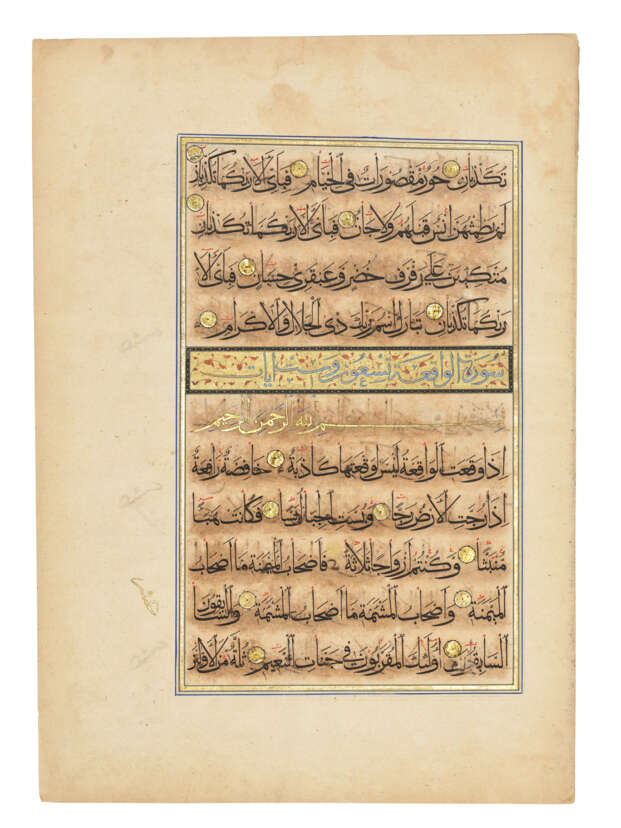 تكذبان حور مقصورات في الخيام فبأي آلاء ربكما تكذبان
لم يطمثهن انس قبلهم ولا جان فبأي آلاء ربكما تكذبان
متكئين على رفرف خضر وعبقري حسان فبأي آلاء
ربكما تكذبان تبارك اسم ربك ذي الجلال والاكرام
سورة الواقعة تسعون وست آيات
بسم الله الرحمن الرحيم
اذا وقعت الواقعة ليس لوقعتها كاذبة خافضة رافعة
اذا رجت الارض رجا وبست الجبال بسا فكانت هباء
منبثا وكنتم ازواجا ثلاثة فاصحاب الميمنة ما اصحاب
الميمنة واصحاب المشئمة ما اصحاب المشئمة والسابقون
السابقون اولئك المقربون في جنات النعيم ثلة من الاولين